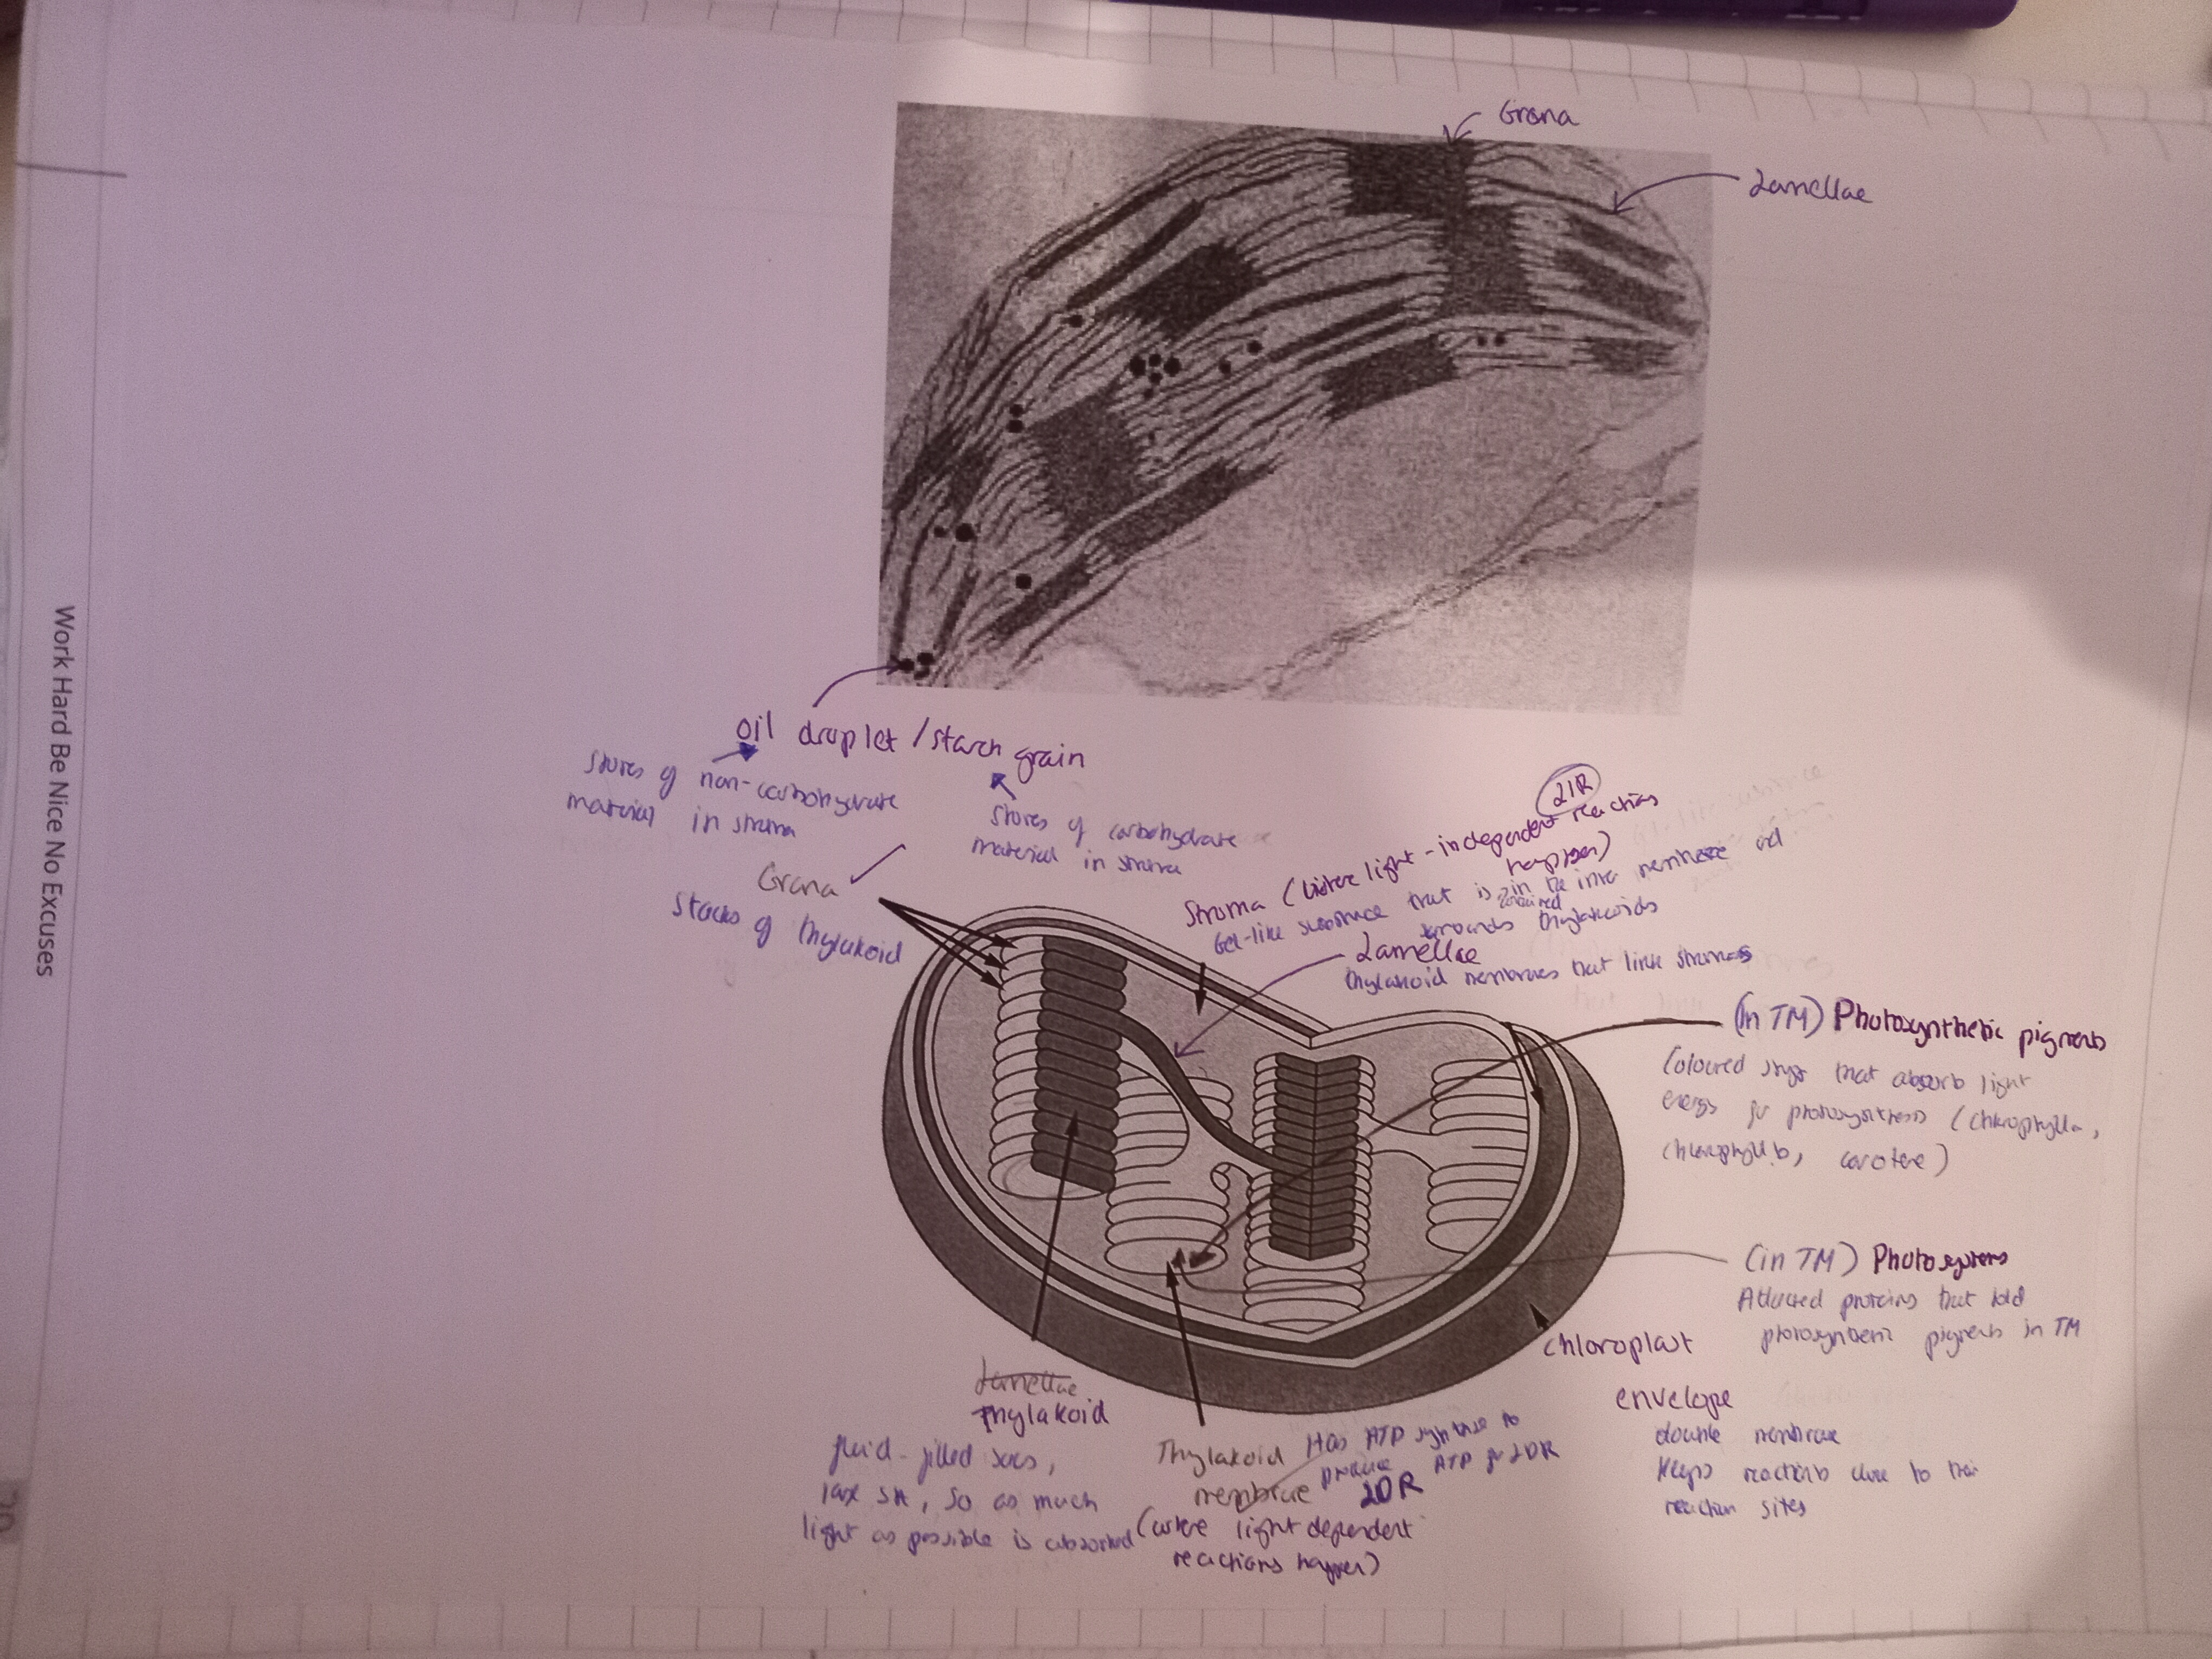 Grana
Lamellae
Work Hard Be Nice No Excuses
oil droplet / starch grain
stores of non-carbohydrate
material in stroma
stores of carbohydrate
material in stroma
Grana
Stacks of thylakoid
LIR
Stroma (where light-independent reactions
happen)
Gel-like substance that is contained in the inner membrane and
surrounds thylakoids
Lamellae
thylakoid membranes that link
(in TM) Photosynthetic pigments
Coloured that absorb light
energy for photosynthesis (chlorophyll a,
chlorophyll b, carotene)
(in TM) Photosystems
Attached proteins that hold
photosynthetic pigments in TM
chloroplast
envelope
double membrane
Keeps reactions close to their
reaction sites
Lamellae
Thylakoid
fluid-filled sacs,
large SA, so as much
light as possible is absorbed
Thylakoid
membrane
Has ATP synthase to
produce ATP for LDR
LDR
(where light dependent
reactions happen)